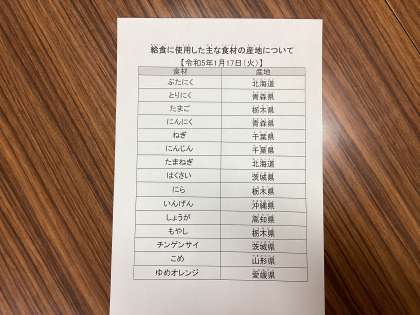 給食に使用した主な食材の産地について
【令和5年1月17日（火）】
食材 産地
ぶたにく 北海道
とりにく 青森県
たまご 栃木県
にんにく 青森県
ねぎ 千葉県
にんじん 千葉県
たまねぎ 北海道
はくさい 茨城県
にら 栃木県
いんげん 沖縄県
しょうが 高知県
もやし 栃木県
チンゲンサイ 茨城県
こめ 山形県
ゆめオレンジ 愛媛県